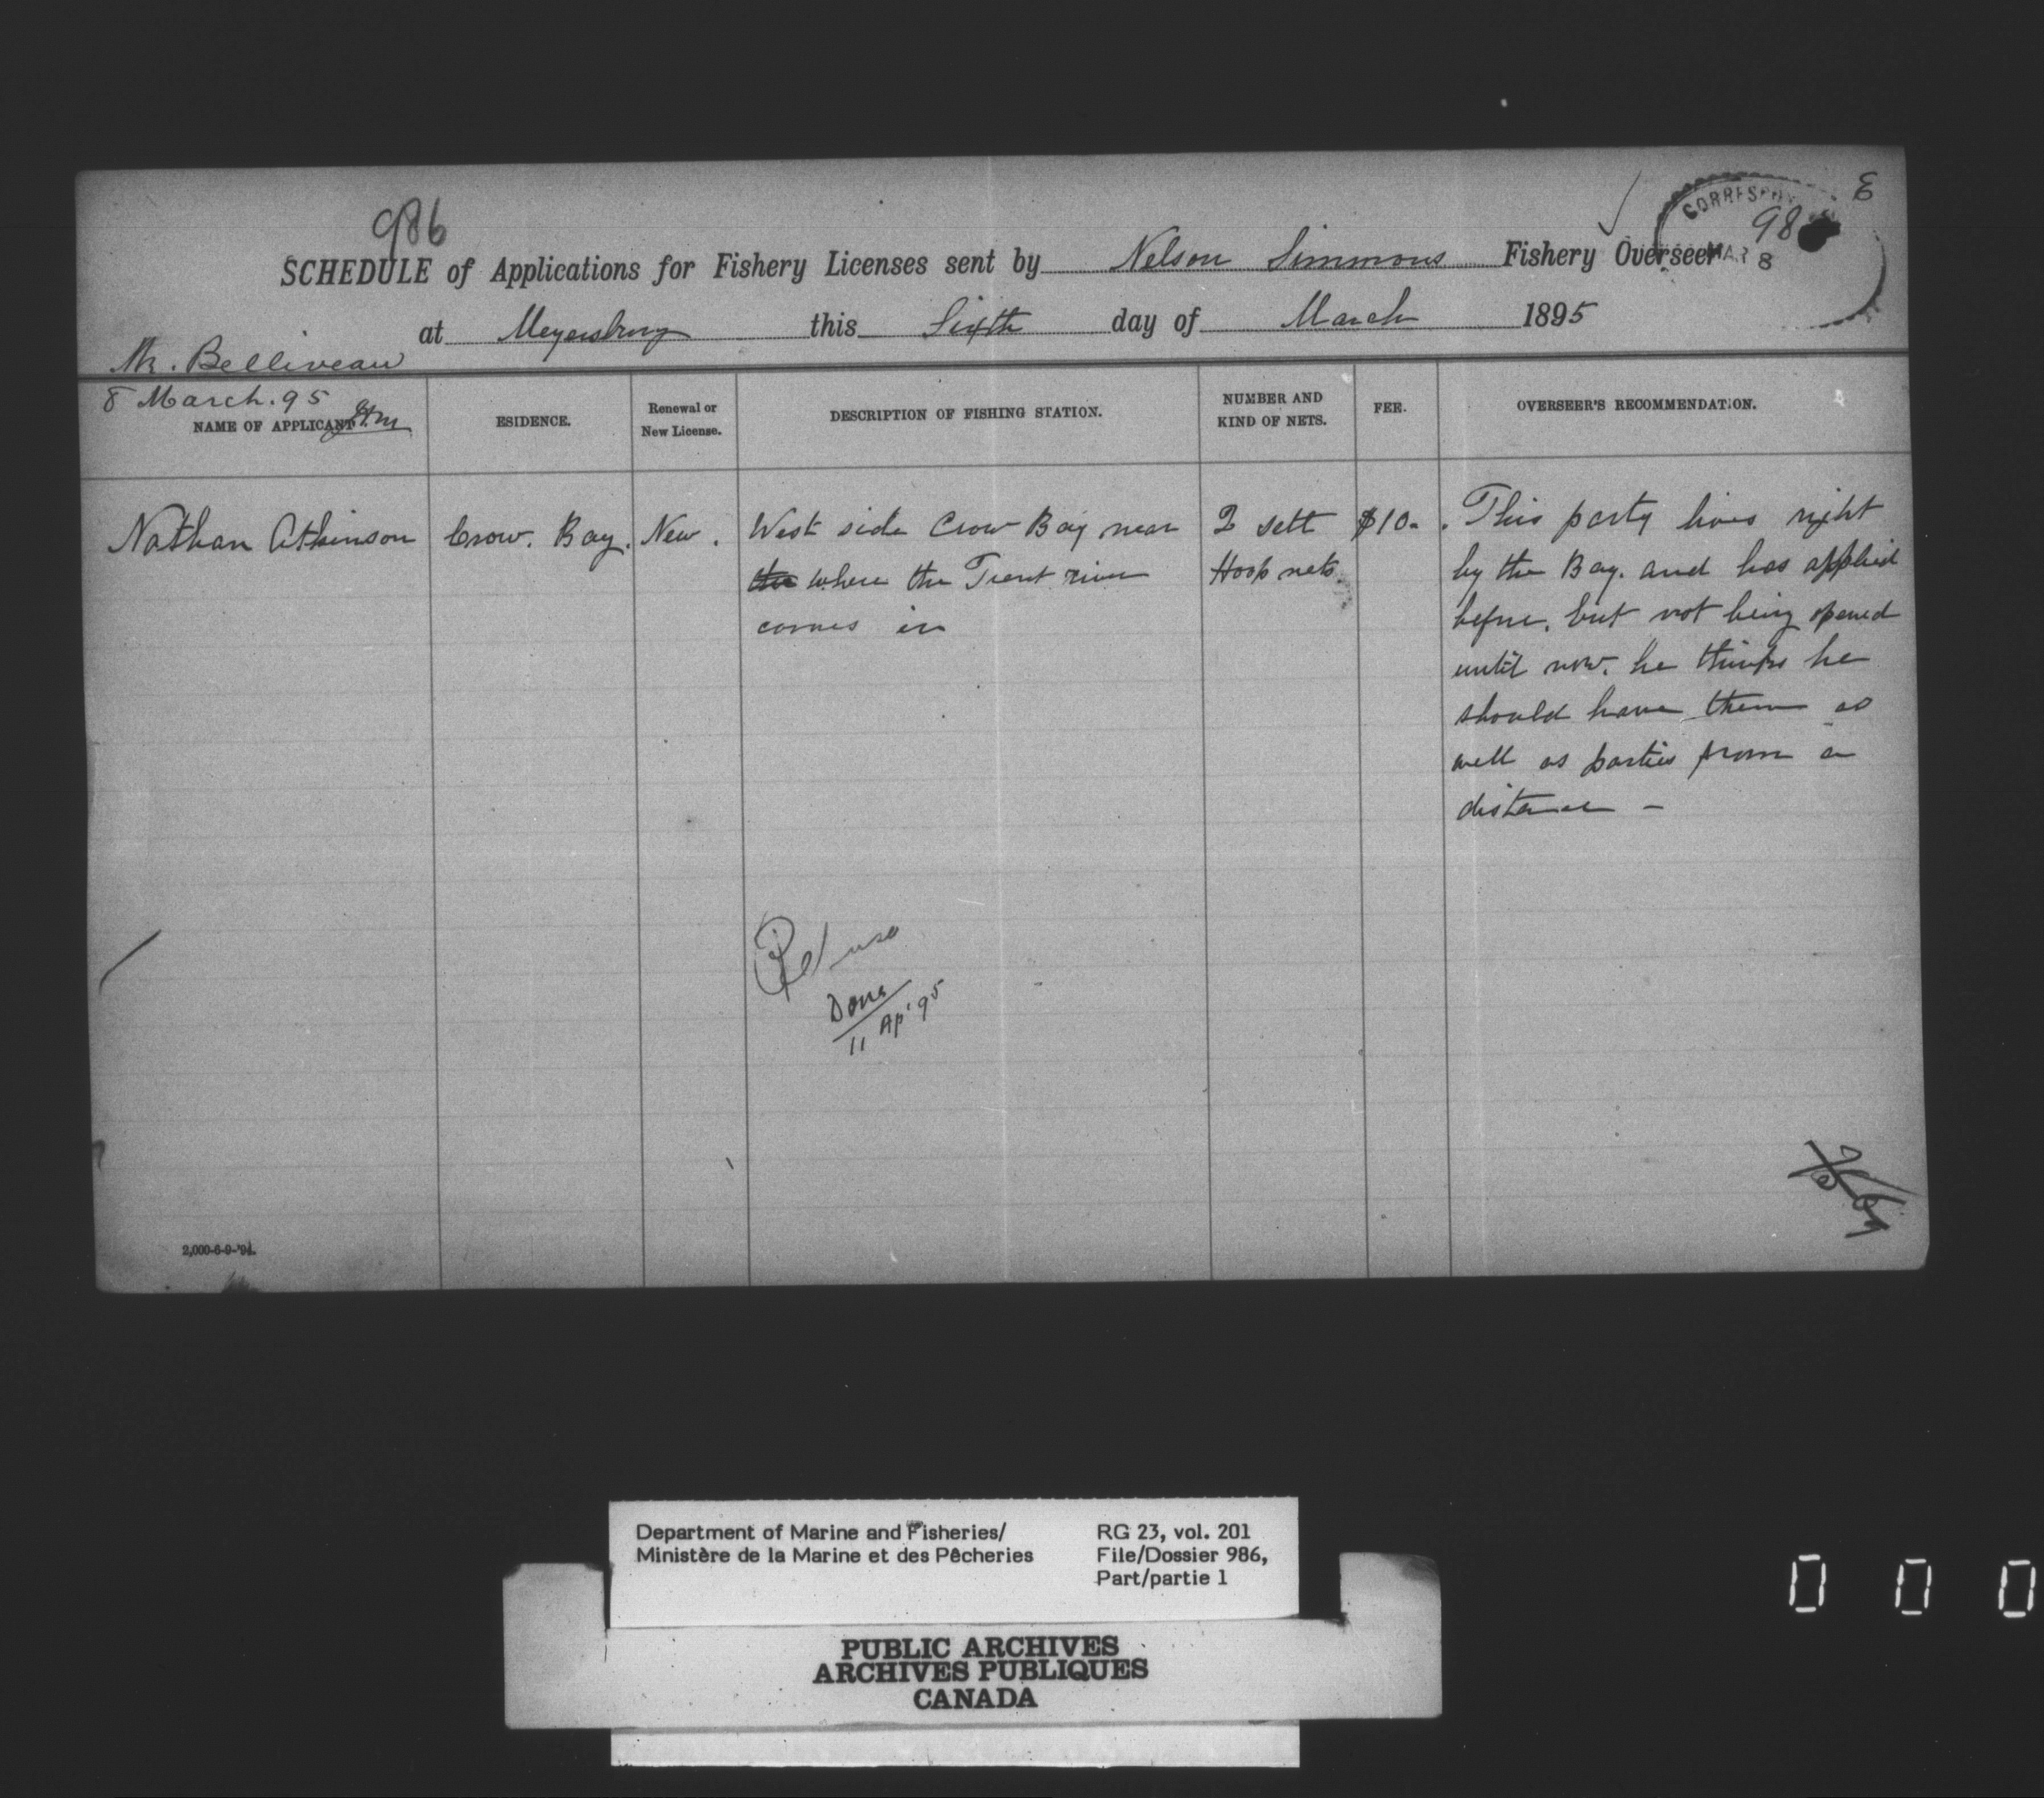 986
E
CORRESPON
98
MAR 8
SCHEDULE of Applications for Fishery Licenses sent by Nelson Simmons Fishery Overseer
at Meyersburg this Sixth day of March 1895
Mr. Belliveau
8 March. 95
NAME OF APPLICANT
ESIDENCE.
Renewal or
New License.
DESCRIPTION OF FISHING STATION.
NUMBER AND
KIND OF NETS.
FEE.
OVERSEER'S RECOMMENDATION.
Nathan Atkinson
Crow. Bay.
New.
West side Crow Bay near
the where the Trent river
comes in
2 sett
Hoop nets.
$10-
This party lives right
by the Bay. and has applied
before. but not being opened
until now. he thinks he
should have them as
well as parties from a
distance -
Refuse
Done
11 Ap' 95
2,000-6-9-'94.
Department of Marine and Fisheries/
Ministère de la Marine et des Pêcheries
RG 23, vol. 201
File/Dossier 986,
Part/partie 1
PUBLIC ARCHIVES
ARCHIVES PUBLIQUES
CANADA
0 0 0